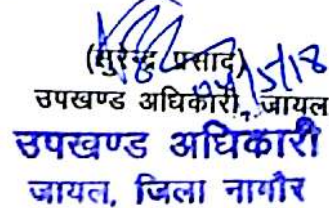 (सुरेन्द्र प्रसाद)
उपखण्ड अधिकारी, जायल
उपखण्ड अधिकारी
जायल, जिला नागौर